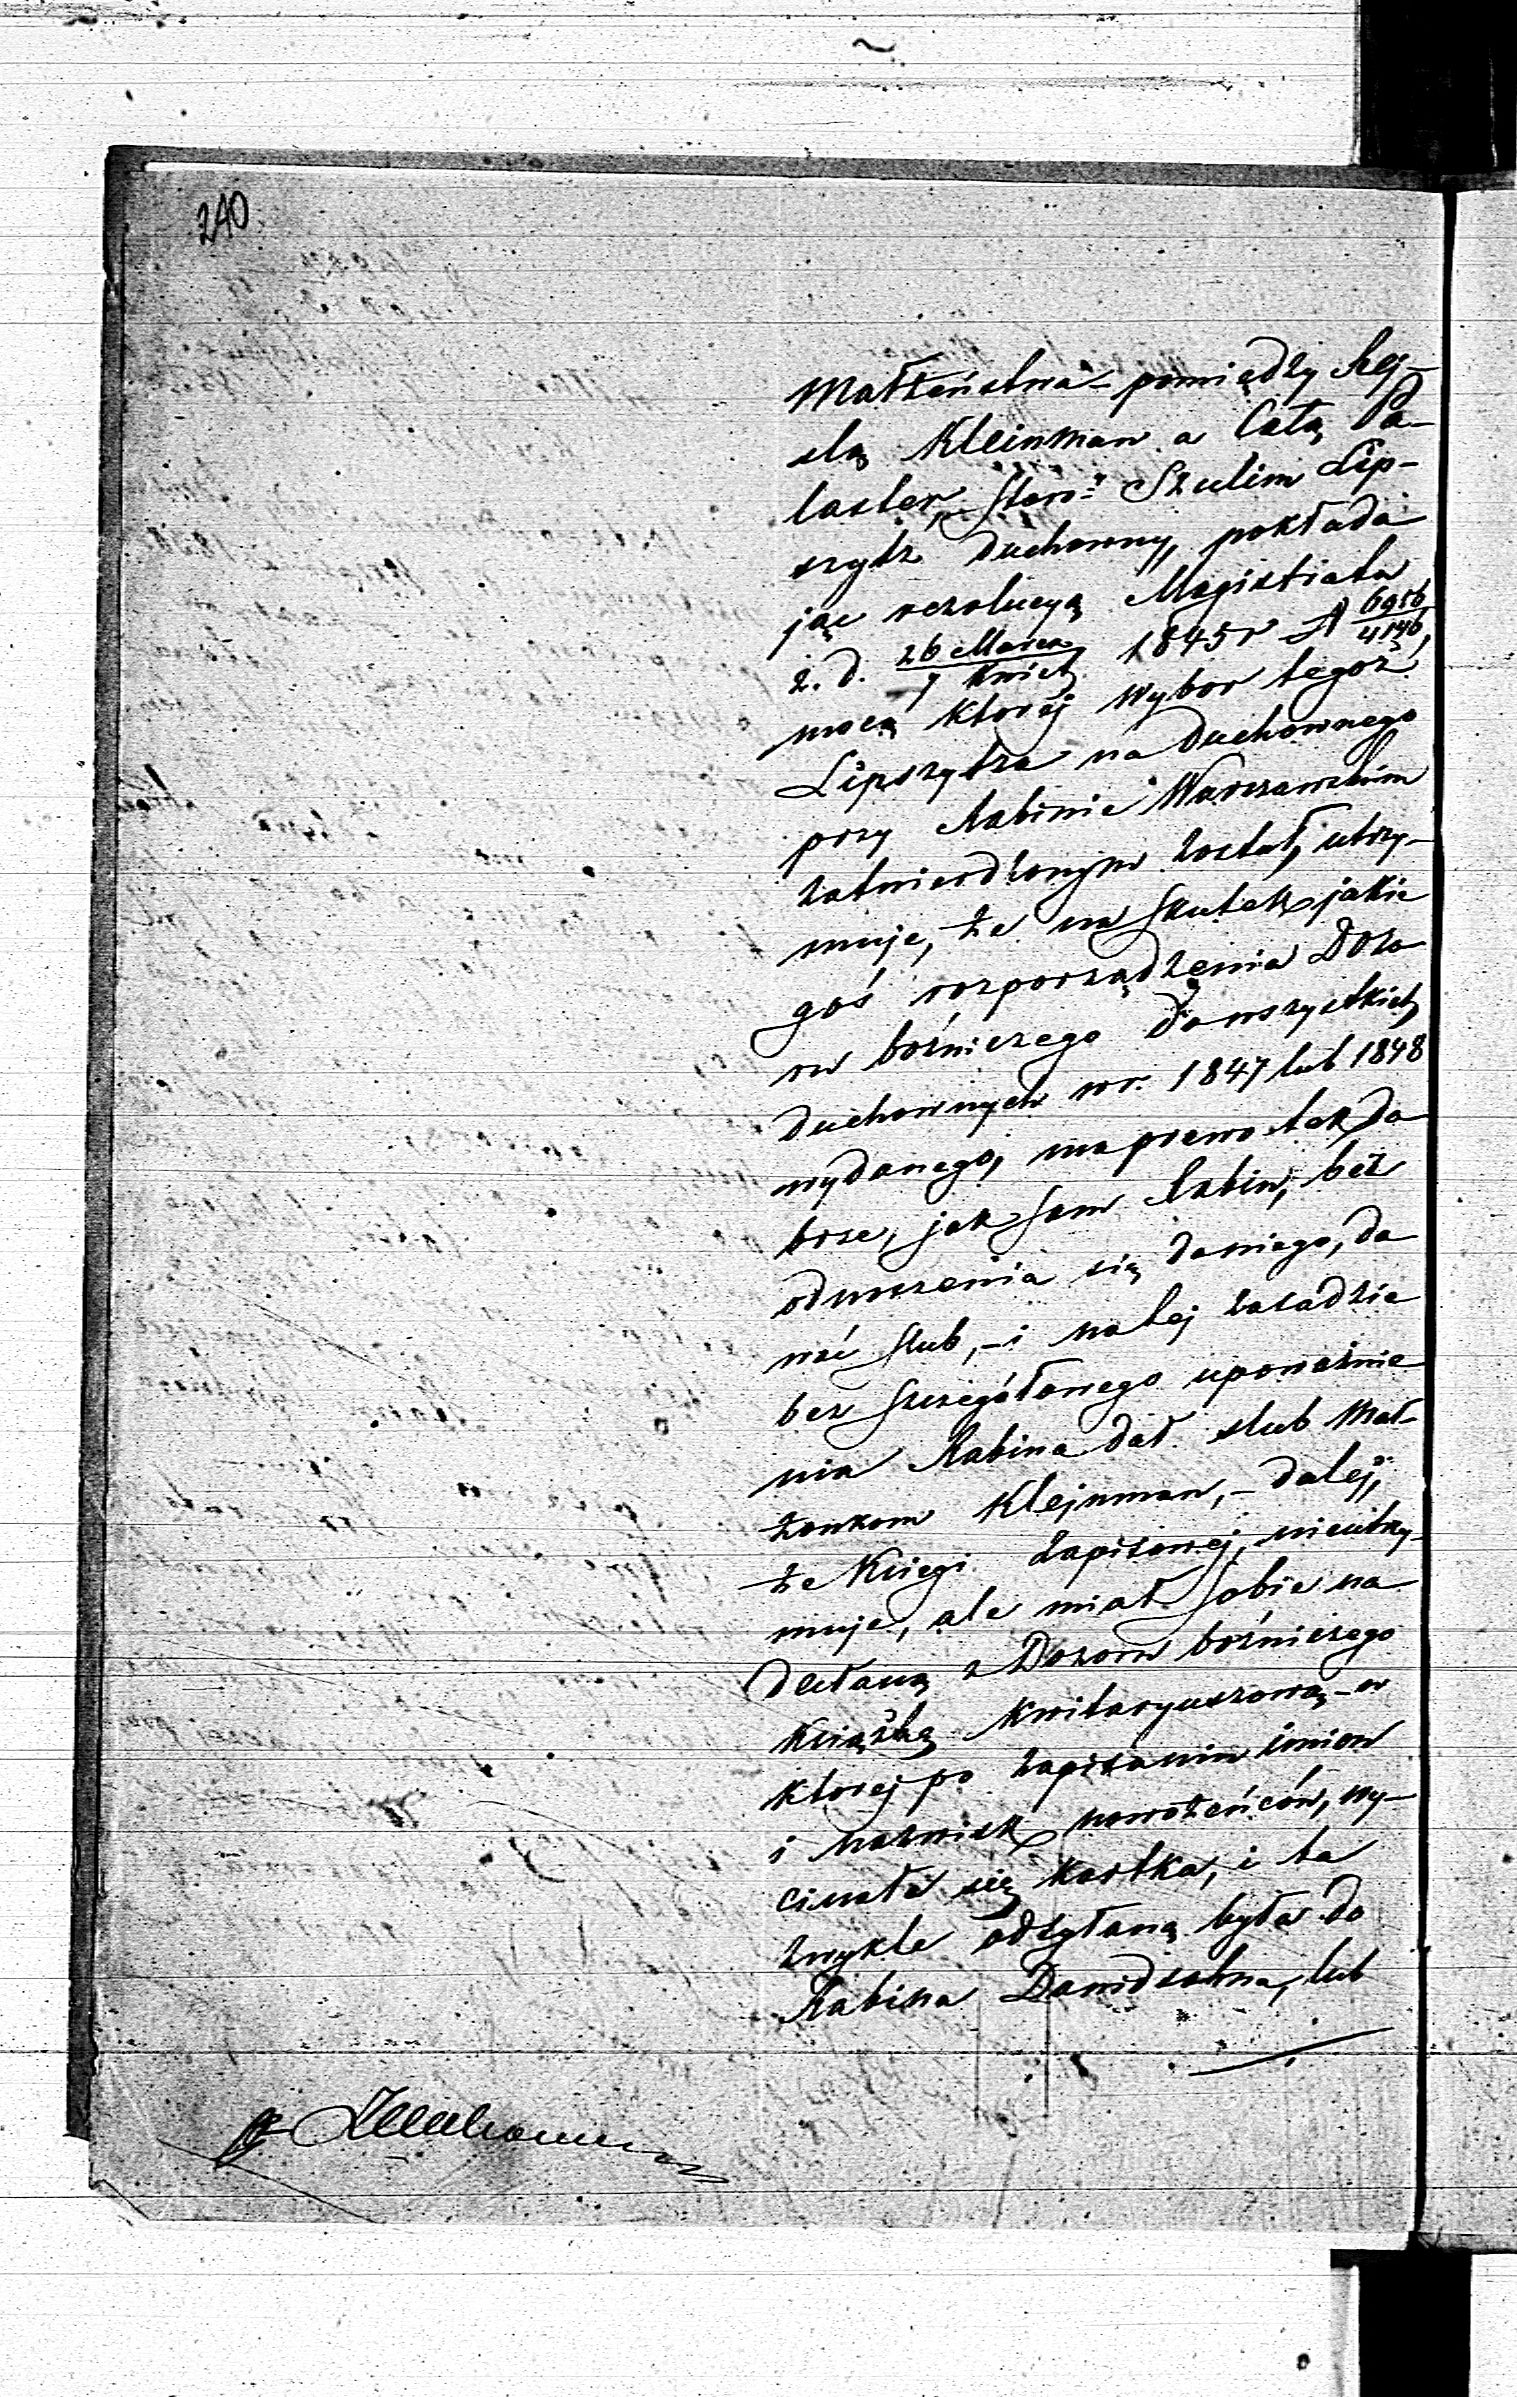 240
Małżeństwa – pomiędzy Rej-
slą Kleinman a Całą Pa-
laster, staro: Szulim Lip-
szytz duchowny, pokłada
jąc rezolucyą Magistratu
z. d. 26 Marca / 7 Kwiet. 1845 r N 6956/4140,
mocą ktorej wybor tegoż
Lipszytza na duchownego
przy Rabinie Warszawskim
zatwierdzonym został, utrzy-
muje, że na skutek jakie
goś rozporządzenia Dozo
ru bożniczego do wszystkich
duchownych w r. 1847 lub 1848
wydanego, ma prawo tak do
brze, jak sam Rabin, bez
odnoszenia się do niego, da
wać ślub, – i na tej zasadzie
bez szczegółowego upoważnie
nia Rabina dał slub Mał-
żonkom Klejnman, – dalej,
że Księgi zapisowej, nieutrzy-
muje, ale miał sobie na
desłaną z Dozoru bożniczego
Książkę Kwitaryuszową – w
ktorej po zapisaniu imion
i nazwisk nowożeńców, wy-
cinała się kartka, i ta
zwykle odsyłaną była do
Rabina Dawidsohna, lub